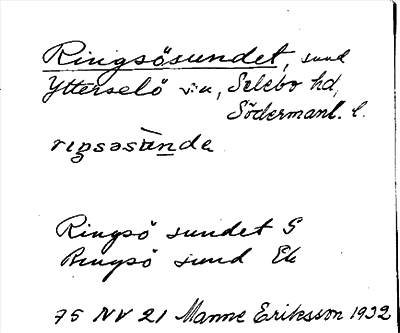 Ringsösundet, sund
Ytterselö sn, Selebo hd,
Södermanl. l.
Ringsö sundet G
Ringsö sund Ek
75 NV 21 Manne Eriksson 1932